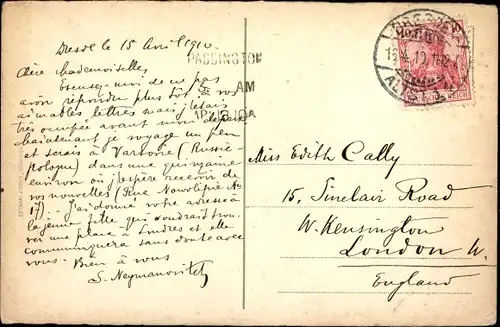 Dresde le 15 Avril 1910
Chère Mademoiselle,
Excusez-moi de ne pas
avoir répondu plus tôt à vos
aimables lettres mais j'étais
très occupée avant mon départ
Maintenant je voyage un peu
et serais à Varsovie (Russie-
pologne) dans une quinzaine
environ où j'espère recevoir de
vos nouvelles (Rue Nowolipie No
17)... J'ai donné votre adresse à
la jeune fille qui voudrait trou-
ver une place à Londres et elle
communiquera sans doute avec
vous. Bien à vous
S.
PADDINGTON
AM
AP 18 10A
DRESDEN
ALTST.
10
REICH
Miss Edith Cally
15, Sinclair Road
W. Kensington
London W.
England